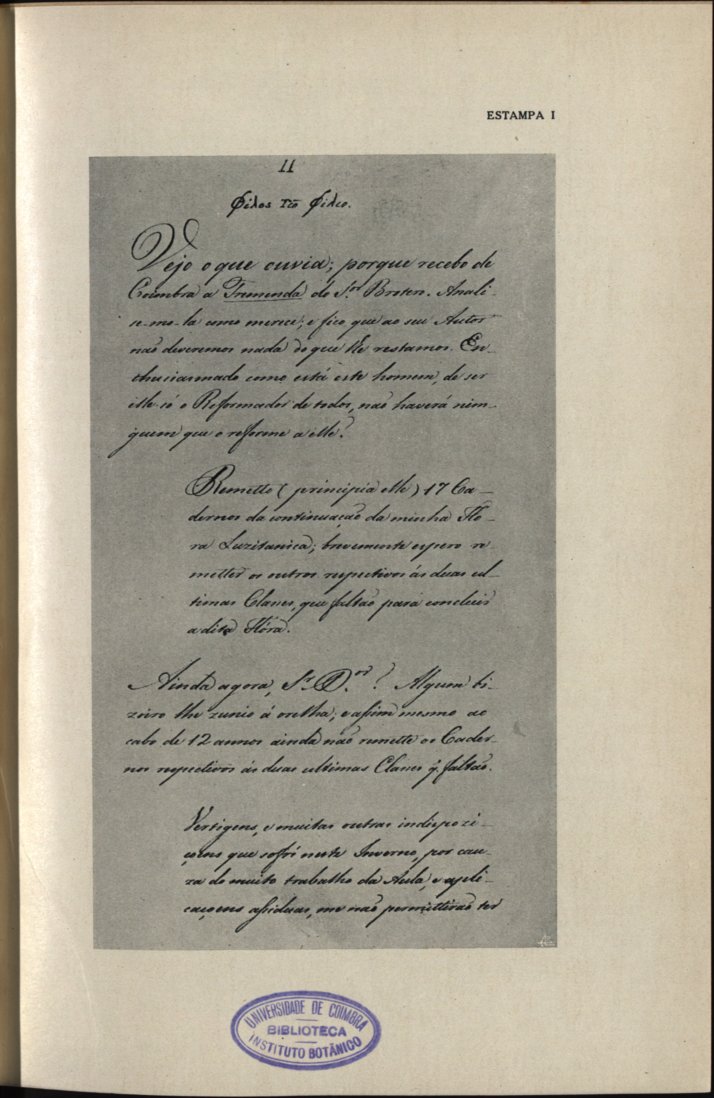 ESTAMPA I
11
Φίλος τῷ φίλῳ.
Vejo o que ouvia; porque recebo de
Coimbra a Tremenda do S.or Brotero. Anali-
se-mo-la como merece; e fico que ao seu Autor
naõ deveremos nada do que lhe restamos. En-
thusiasmado como está este homem, de ser
elle só o Refformador de todos, naõ haverá nim-
guem que o refforme a elle?
Remetto (principia elle) 17 Ca-
dernos da continuaçaõ da minha Flo-
ra Luzitanica; brevemente espero re-
metter os outros respectivos ás duas ul-
timas Classes, que faltaõ para concluir
a dita Flóra.
Ainda agora, S.r D.or? Algum bi-
zoiro lhe zunio á orelha; e assim mesmo ao
cabo de 12 annos ainda naõ remette os Cader-
nos respectivos ás duas ultimas Classes q̃ faltaõ.
Vertigens, e muitas outras indispozi-
çoens que soffri neste Inverno, por cau-
za do muito trabalho da Aula, e apli-
caçoens assiduas, me naõ permittiraõ ter
UNIVERSIDADE DE COIMBRA
BIBLIOTECA
INSTITUTO BOTÂNICO